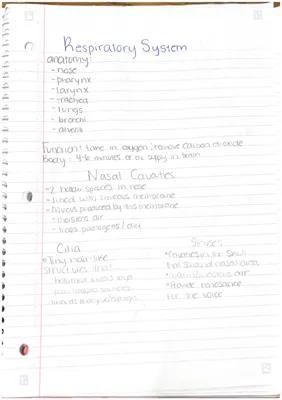 Respiratory System
anatomy:
- nose
- pharynx
- larynx
- trachea
- lungs
- bronchi
- alveoli
Function: take in oxygen; remove carbon dioxide
Body: 4-6 minutes of O2 supply in brain
Nasal Cavities
- 2 hollow spaces in nose
- lined with mucous membrane
- Mucus produced by this membrane
- moistens air
- traps pathogens / dirt
Cilia
• Tiny hair-like
structures that
Sinuses
• Cavities in the Skull
that surround nasal area
air
• Provide resonance
for the voice